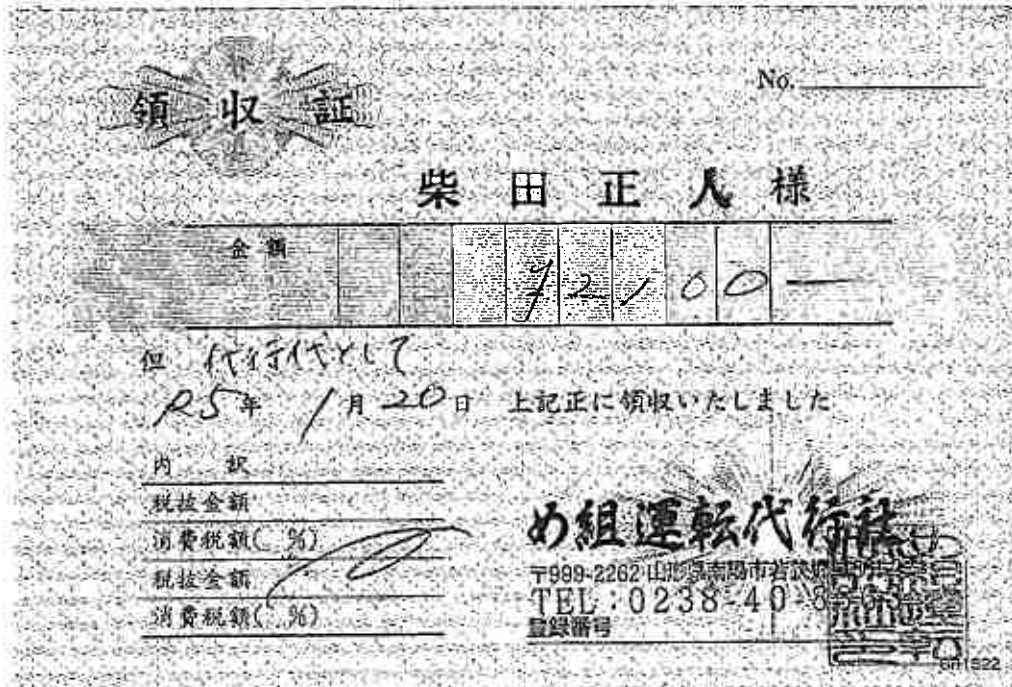 領収証
No.
柴田正人様
金額 ¥2,100—
但 代行代として
R5年 1月20日 上記正に領収いたしました
内訳
税抜金額
消費税額( %)
税抜金額
消費税額( %)
め組運転代行社
〒999-2262 山形県南陽市
TEL:0238-40-8
登録番号